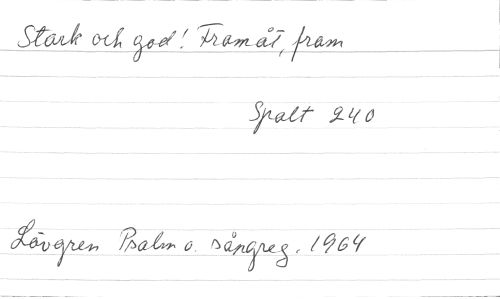 Stark och god! Framåt, fram
Spalt 240
Lövgren Psalm o. sångreg. 1964